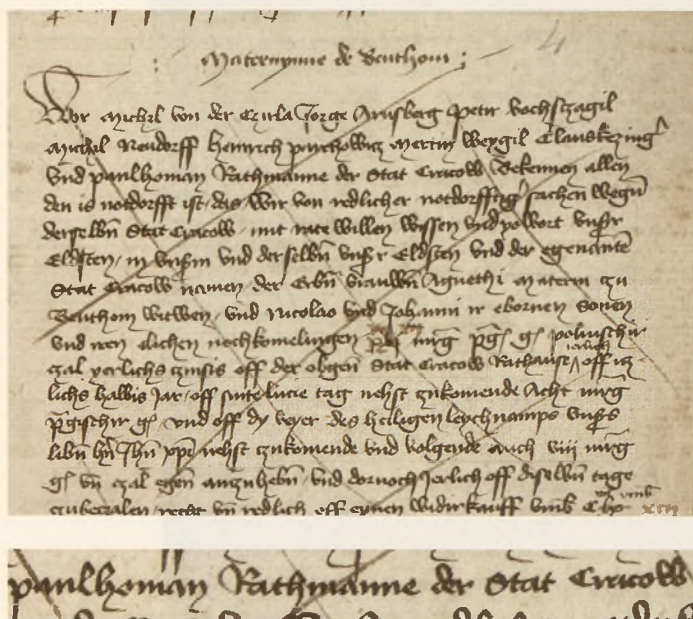 Materninne de Beuthom
4
Wir Michil von der Czirla Jorge Arnsberg Petir
Michil Neudorff Heinrich Mertin Weygil Claus
vnd paulhoman Rathmanne der Stat Cracow Bekennen allen
den is notdorfft ist das Wir von redlicher notdorfftig sachen wegn
derselbn Stat Cracow mit rate willen wyssen vnd volwort vnsir
Eldsten in vnsirm vnd der selbn vnsir Eldsten vnd der egenante
Stat Cracow namen der Erbn vrauwn Agnethi Matern czu
Beuthom witwen vnd Nicolao vnd Johanni ir ebornen Sonen
vnd iren elichen nochkomelingen mrg pg gr polnischir
czal yerlichs czinsis off der obgen Stat Cracow Rathause ierlich off itz
lichs halbis Jar off sinte lucie tag nehst czukomende Acht mrg
pgischir gr vnd off dy veyer des heiligen leychnamps vnsirs
libn hn Jhu xpi nehst czukomende vnd volgende auch viii mrg
gr vn czal egen anczuhebn vnd dornoch Jerlich off diselbn tage
czubeczalen recht vn redlich off eynen widirkauff vmb
paulhoman Rathmanne der Stat Cracow